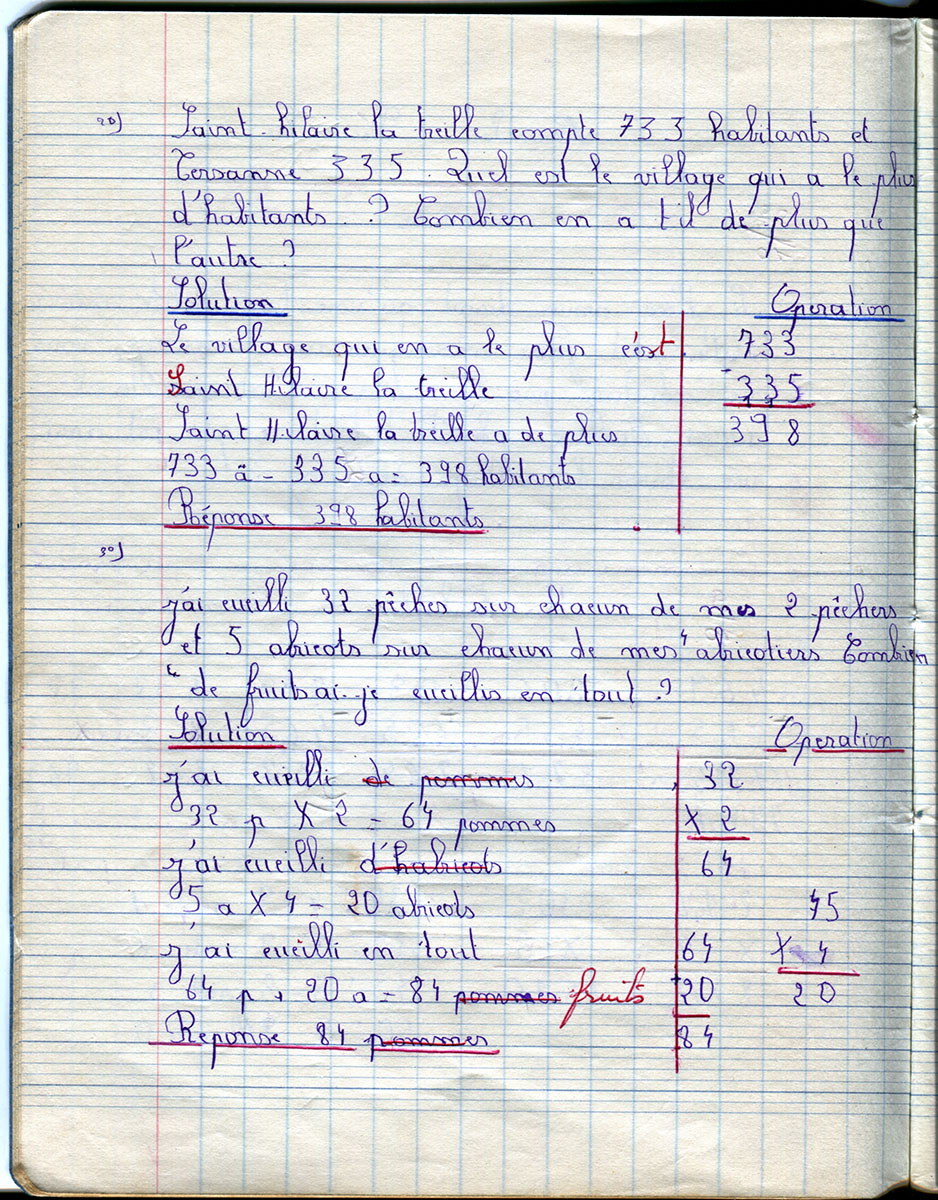 2º) Saint-hilaire la treille compte 733 habitants et
Tersanne 335. Quel est le village qui a le plus
d'habitants ? Combien en a t'il de plus que
l'autre ?
Solution Operation
Le village qui en a le plus c'est 733
Saint Hilaire la treille - 335
Saint Hilaire la treille a de plus 398
733 a - 335 a = 398 habitants
Réponse 398 habitants
3º)
j'ai cueilli 32 pêches sur chacun de mes 2 pêchers
et 5 abricots sur chacun de mes 4 abricotiers Combien
de fruits ai-je cueillis en tout ?
Solution Operation
j'ai cueilli de pommes 32
32 p X 2 = 64 pommes X 2
j'ai cueilli d'habricots 64
5 a X 4 = 20 abricots 5
j'ai cueilli en tout 64 X 4
64 p + 20 a = 84 pommes fruits 20 20
Reponse 84 pommes 84